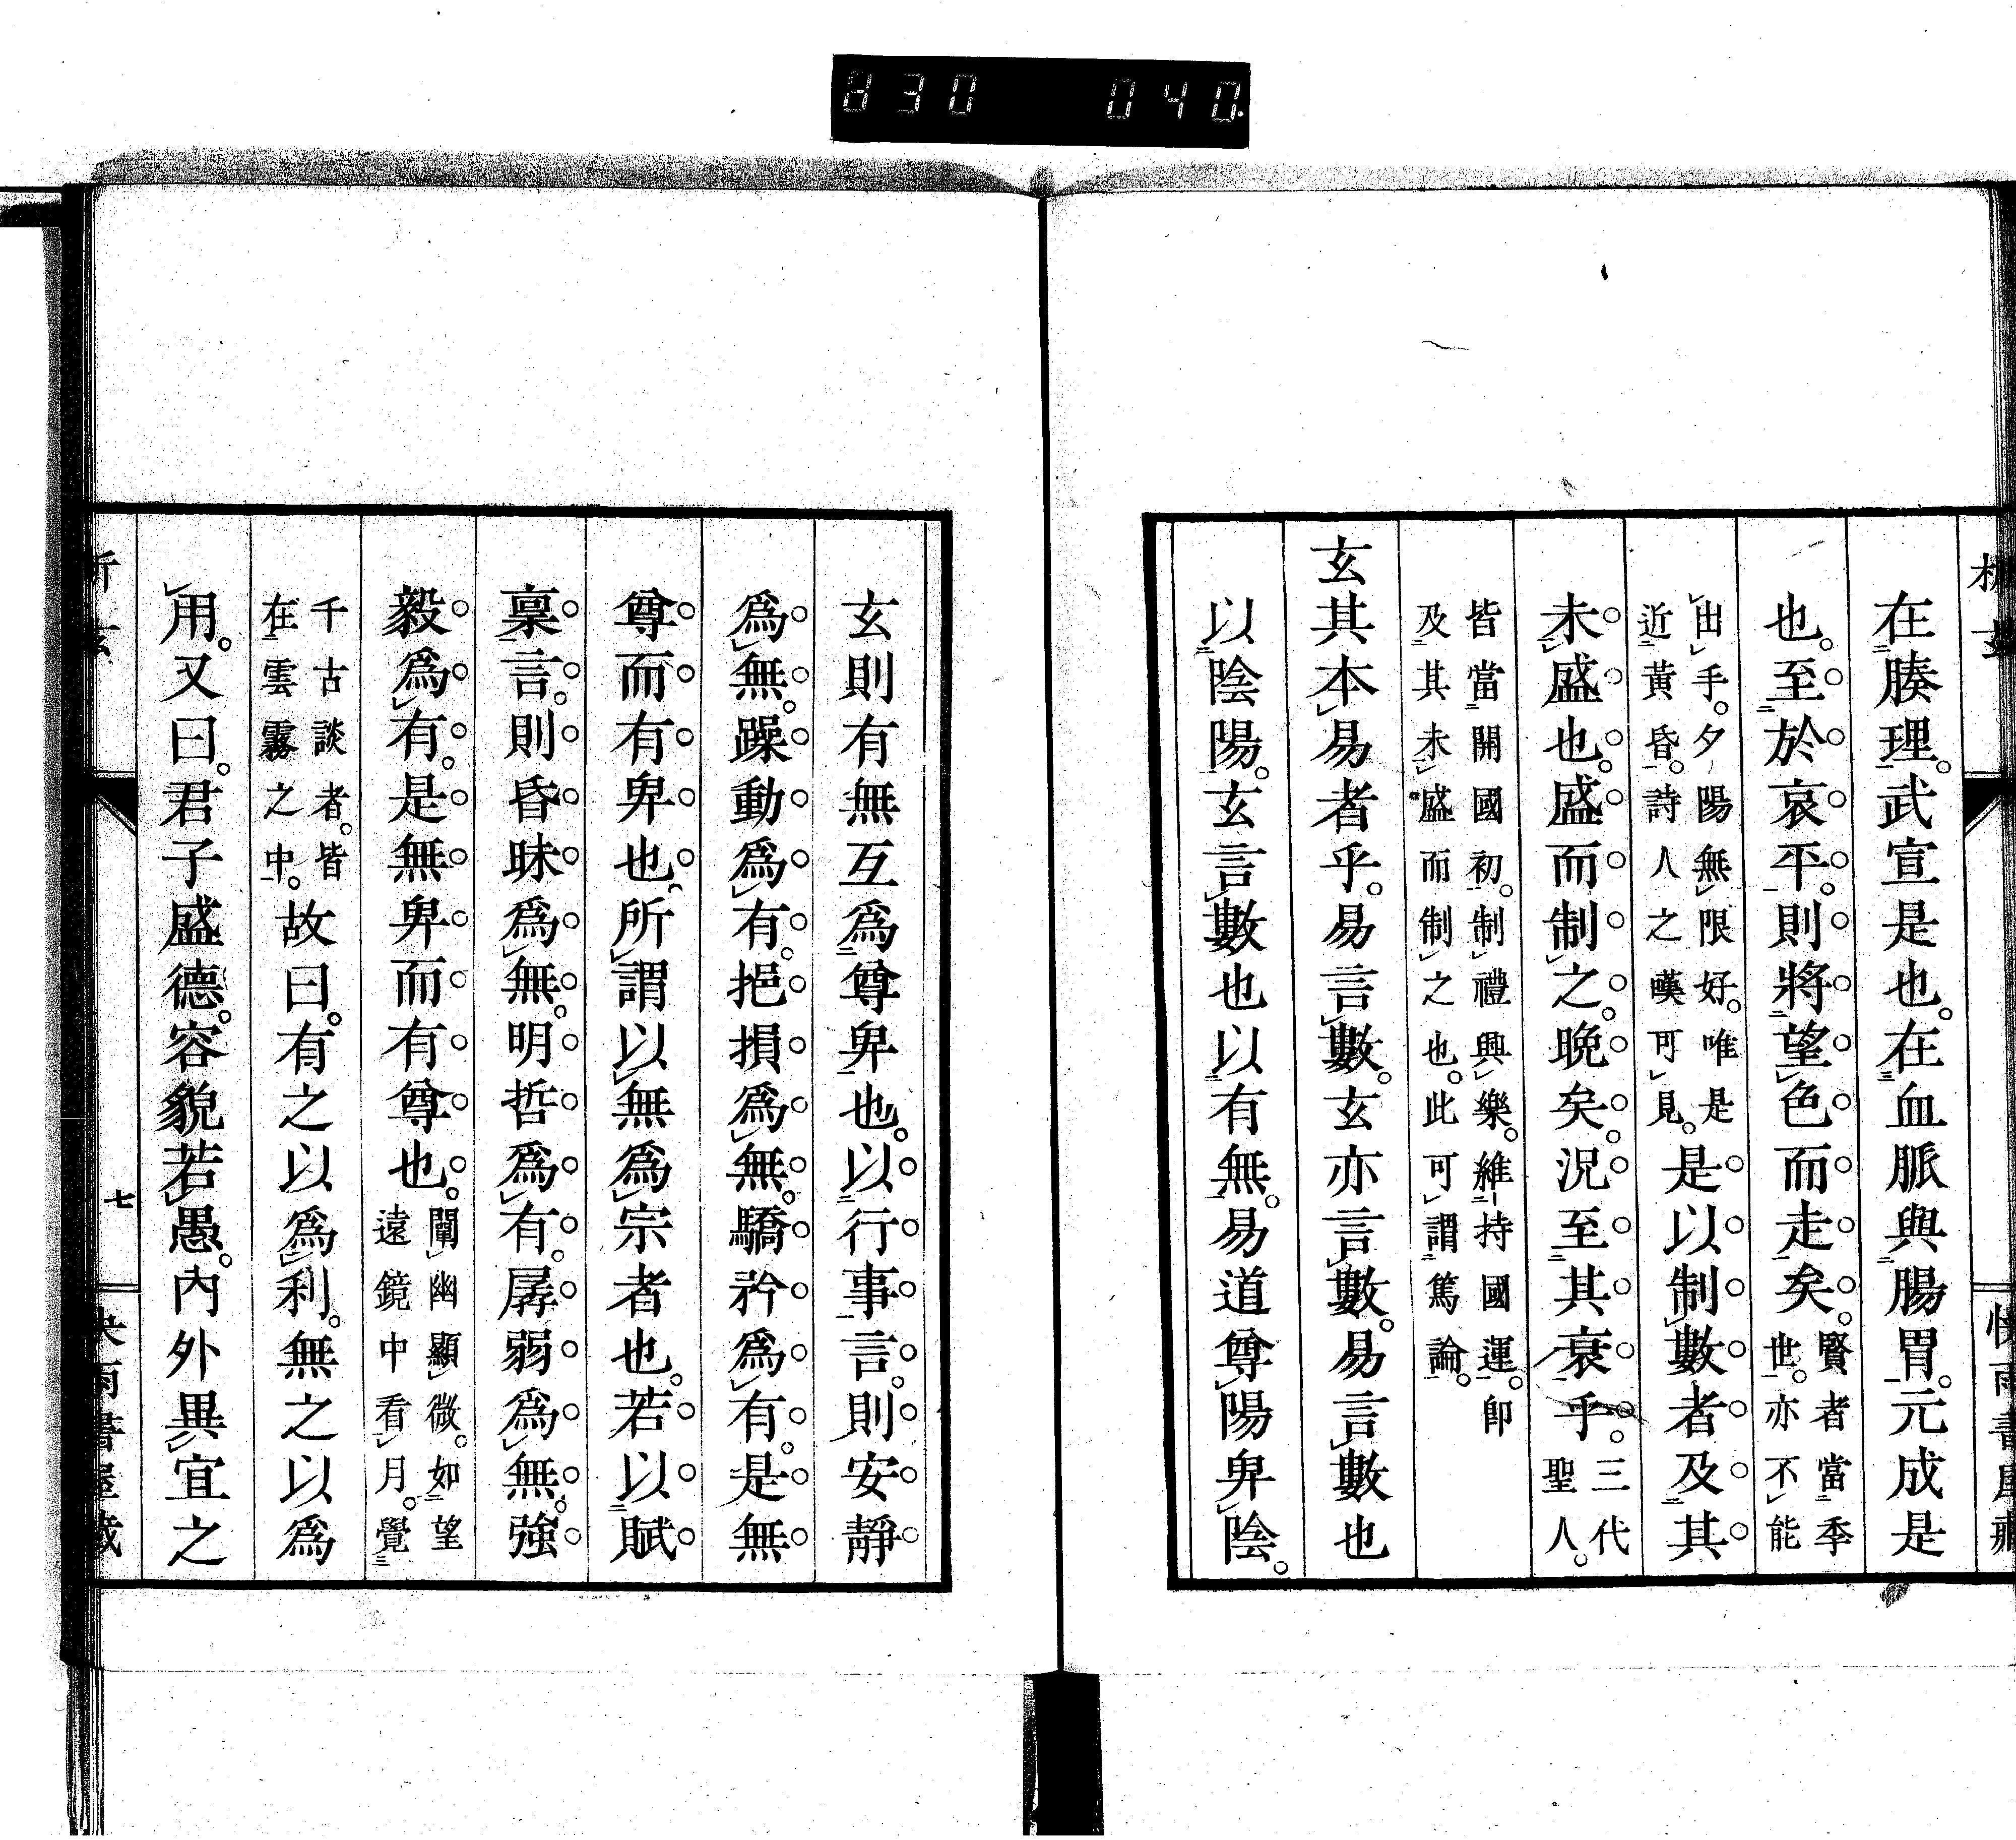 在腠理。武宣是也。在血脈與腸胃。元成是
也。至於哀平。則將望色而走矣。賢者當季
世。亦不能
出手。夕陽無限好。唯是
近黃昏。詩人之嘆可見。是以制數者及其
未盛也。盛而制之。晚矣。況至其衰乎。三代
聖人。
皆當開國初。制禮興樂。維持國運。卽
及其未盛而制之也。此可謂篤論。
玄其本易者乎。易言數。玄亦言數。易言數也
以陰陽。玄言數也以有無。易道尊陽卑陰。
玄則有無互爲尊卑也。以行事言。則安靜
爲無。躁動爲有。挹損爲無。驕矜爲有。是無
尊而有卑也。所謂以無爲宗者也。若以賦
稟言。則昏昧爲無。明哲爲有。孱弱爲無。強
毅爲有。是無卑而有尊也。闡幽顯微。如望
遠鏡中看月。覺
千古談者。皆
在雲霧之中。故曰。有之以爲利。無之以爲
用。又曰。君子盛德。容貌若愚。內外異宜之
七
830 040